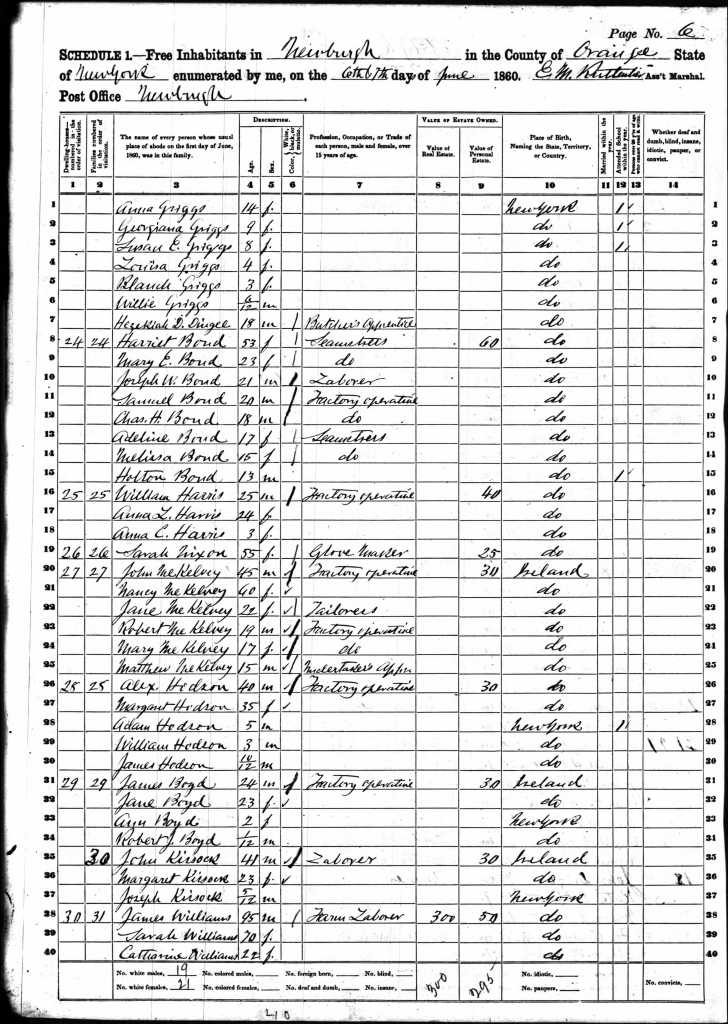 Page No. 6
SCHEDULE 1.—Free Inhabitants in Newburgh in the County of Orange State
of New York enumerated by me, on the 6th & 7th day of June 1860. E. M. Ass't Marshal.
Post Office Newburgh
Dwelling-houses—numbered in the order of visitation. Families numbered in the order of visitation. The name of every person whose usual place of abode on the first day of June, 1860, was in this family. DESCRIPTION. Age. Sex. Color, White, black, or mulatto. Profession, Occupation, or Trade of each person, male and female, over 15 years of age. VALUE OF ESTATE OWNED. Value of Real Estate. Value of Personal Estate. Place of Birth, Naming the State, Territory, or Country. Married within the year. Attended School within the year. Whether deaf and dumb, blind, insane, idiotic, pauper, or convict.
1 2 3 4 5 6 7 8 9 10 11 12 13 14
1 Anna Griggs 14 f. New York 1 1
2 Georgiana Griggs 9 f. do 1 2
3 Susan E. Griggs 8 f. do 1 3
4 Louisa Griggs 4 f. do 4
5 Blanch Griggs 3 f. do 5
6 Willie Griggs 6/12 m do 6
7 Hezekiah D. Dingee 18 m / Butcher's Apprentice do 7
8 24 24 Harriet Bond 53 f / Seamstress 60 do 8
9 Mary E. Bond 23 f / do do 9
10 Joseph W. Bond 21 m / Laborer do 10
11 Samuel Bond 20 m / Factory operative do 11
12 Chas. H. Bond 18 m / do do 12
13 Adeline Bond 17 f / Seamstress do 13
14 Melissa Bond 15 f / do do 14
15 Holton Bond 13 m do 1 15
16 25 25 William Harris 25 m / Factory operative 40 do 16
17 Anna L. Harris 24 f. do 17
18 Anna C. Harris 3 f. do 18
19 26 26 Sarah Nixon 55 f. / Glove Maker 25 do 19
20 27 27 John McKelvey 45 m / Factory operative 30 Ireland 20
21 Nancy McKelvey 60 f. ✓ do 21
22 Jane McKelvey 22 f. ✓ / Tailoress do 22
23 Robert McKelvey 19 m ✓ / Factory operative do 23
24 Mary McKelvey 17 f. ✓ / do do 24
25 Matthew McKelvey 15 m ✓ / Undertaker's Appr do 25
26 28 28 Alex. Hodson 40 m ✓ / Factory operative 30 do 26
27 Margaret Hodson 35 f ✓ do 27
28 Adam Hodson 5 m New York 1 28
29 William Hodson 3 m do 29
30 James Hodson 10/12 m do 30
31 29 29 James Boyd 24 m / Factory operative 30 Ireland 31
32 Jane Boyd 23 f. ✓ do 32
33 Ann Boyd 2 f New York 33
34 Robert J. Boyd 1/12 m do 34
35 30 John Kissock 41 m ✓ / Laborer 30 Ireland 35
36 Margaret Kissock 23 f. ✓ do 36
37 Joseph Kissock 5/12 m New York 37
38 30 31 James Williams 95 m / Farm Laborer 300 50 do 38
39 Sarah Williams 70 f. do 39
40 Catharine Williams 22 f. do 40
No. white males, 19 No. colored males, No. foreign born, No. blind, 300 295 No. idiotic, No. convicts,
No. white females, 21 No. colored females, No. deaf and dumb, No. insane, No. paupers,